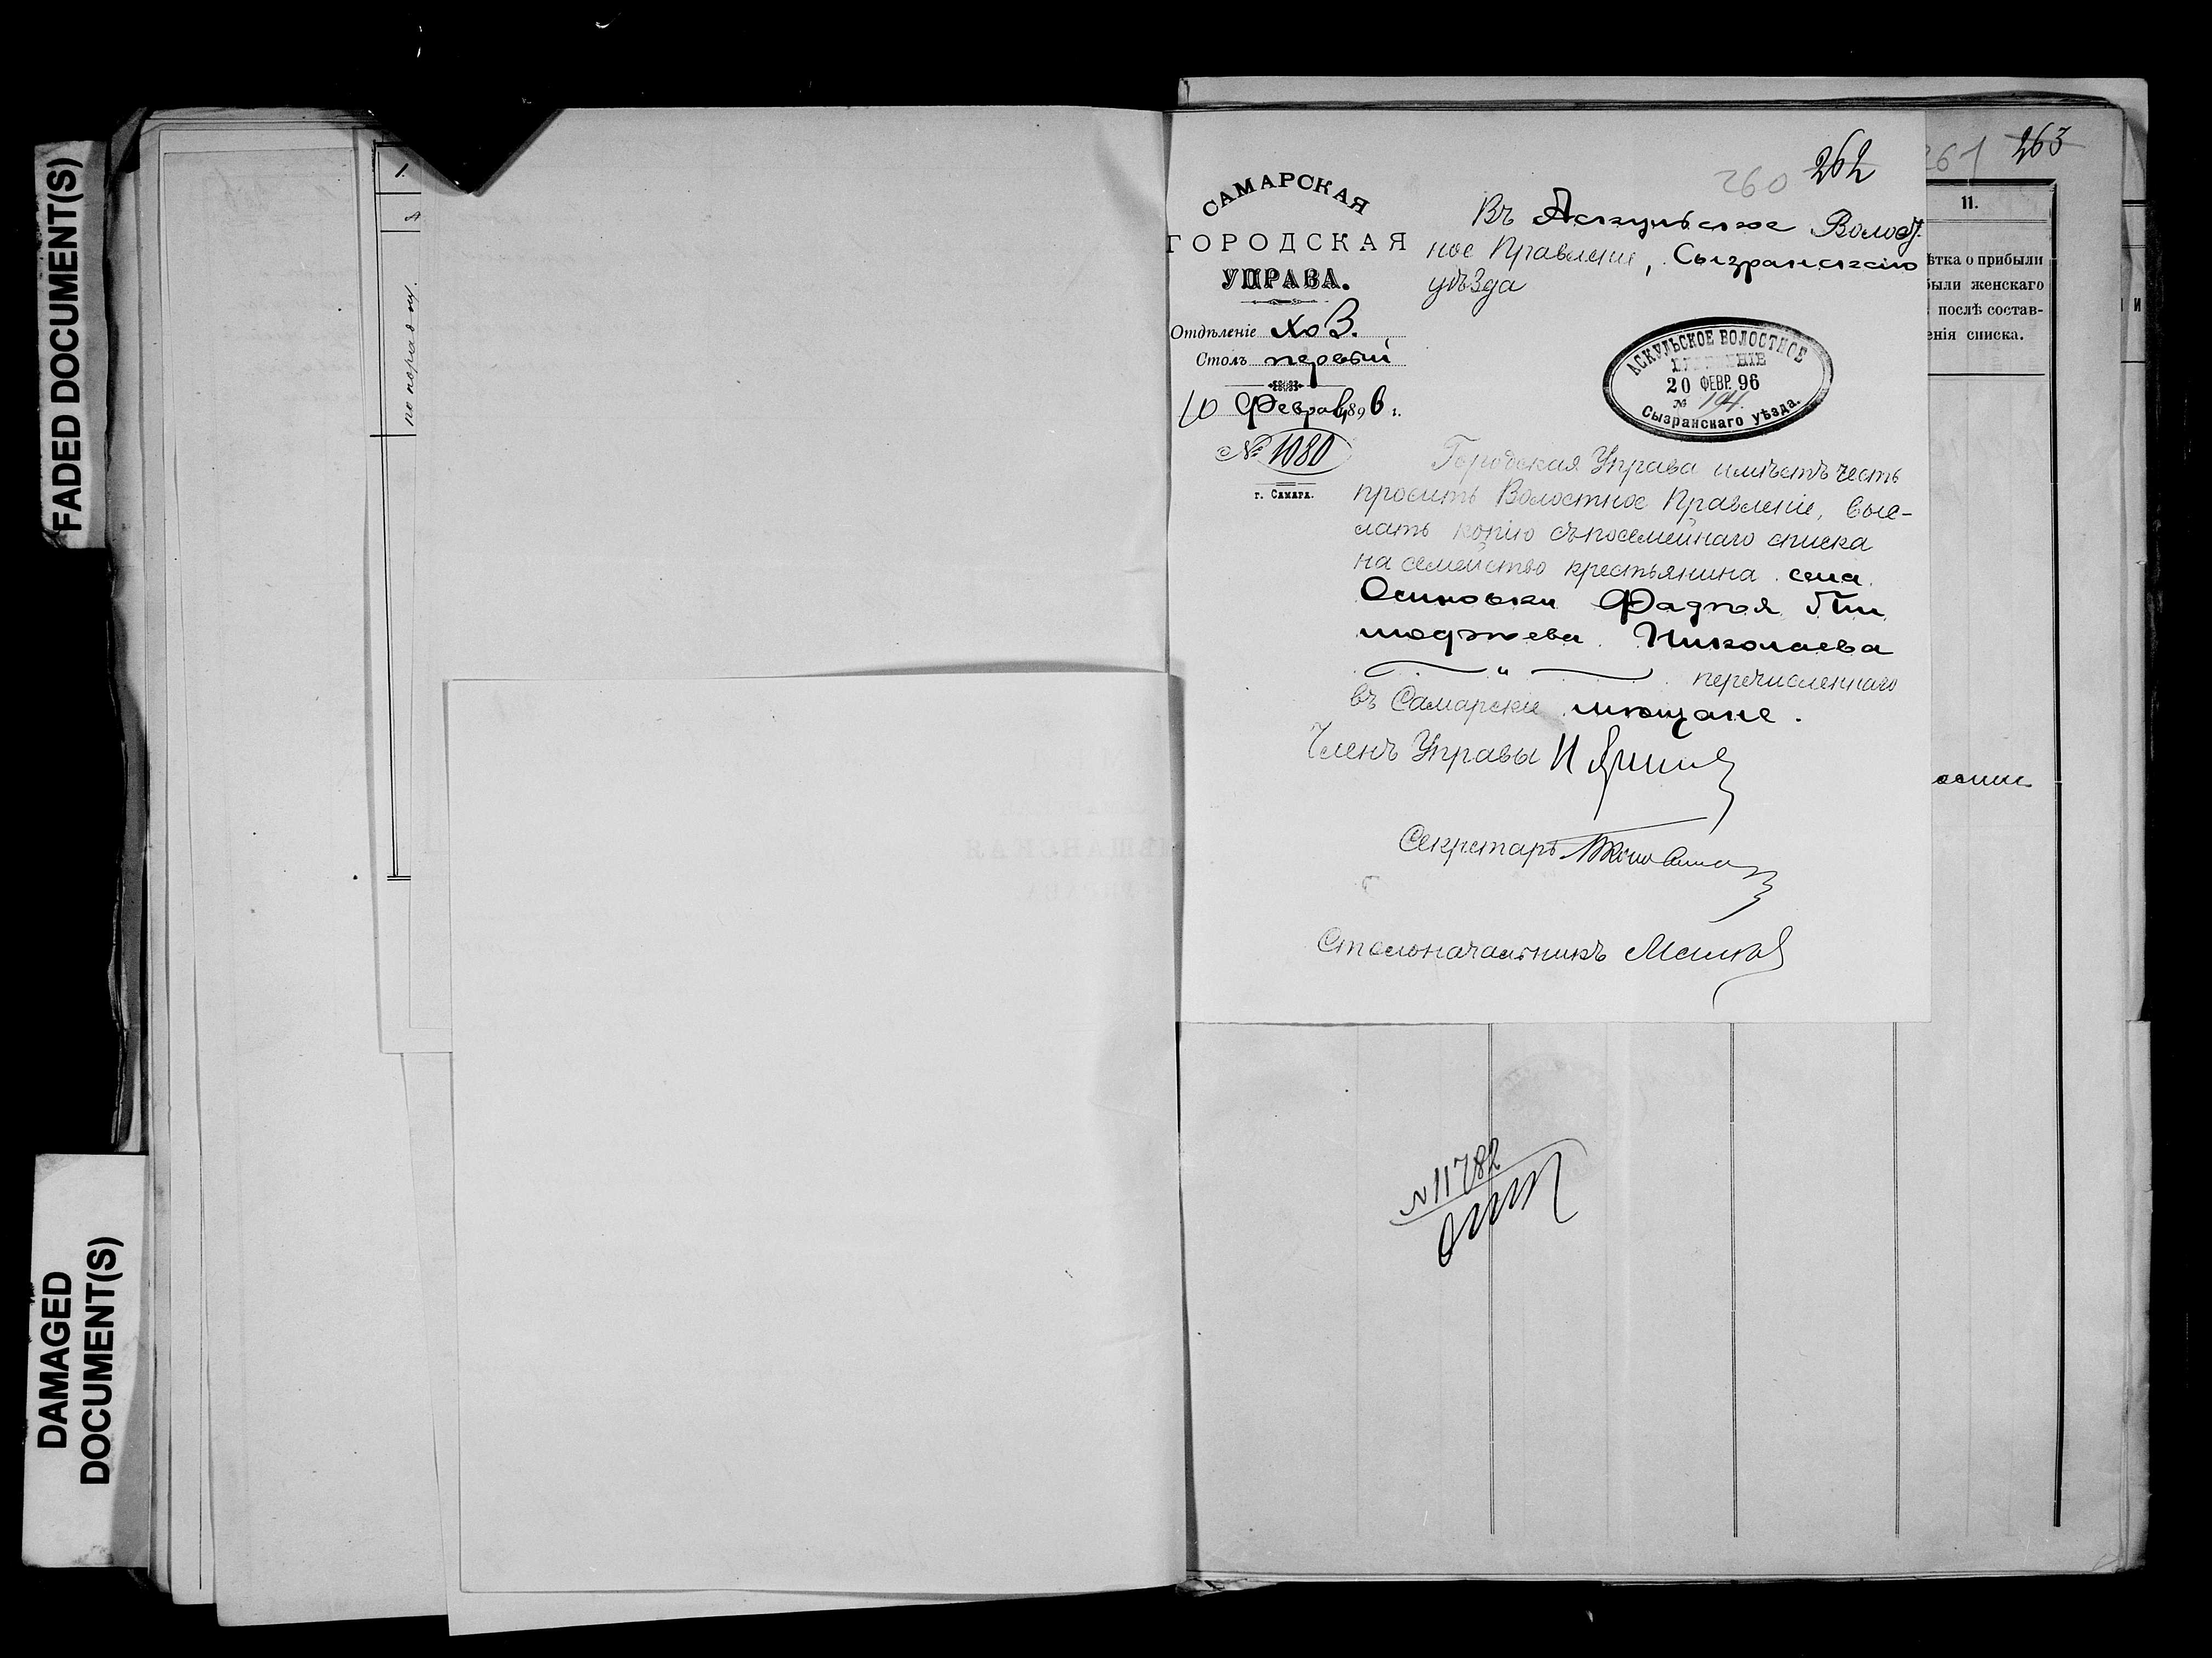 FADED DOCUMENT(S)
DAMAGED
DOCUMENT(S)
1.
А
по порядку.
САМАРСКАЯ
ГОРОДСКАЯ
УПРАВА.
Отдѣленіе Хоз.
Столъ первый
10 Февраля 1896 г.
№ 1080
г. САМАРА.
260 262
Въ Аскульское Волост
ное Правленіе, Сызранскаго
уѣзда
АСКУЛЬСКОЕ ВОЛОСТНОЕ
ПРАВЛЕНІЕ
20 ФЕВР. 96
№ 194.
Сызранскаго уѣзда.
Городская Управа имѣетъ честь
просить Волостное Правленіе, выс-
лать копію съ посемейнаго списка
на семейство крестьянина села
Осиновки Фадѣя Ти
мофѣева Николаева
" перечисленнаго
въ Самарскіе мѣщане.
Членъ Управы И
Секретарь
Столоначальникъ
261 263
11.
ѣтка о прибыли
были женскаго
послѣ состав-
енія списка.
№ 11782